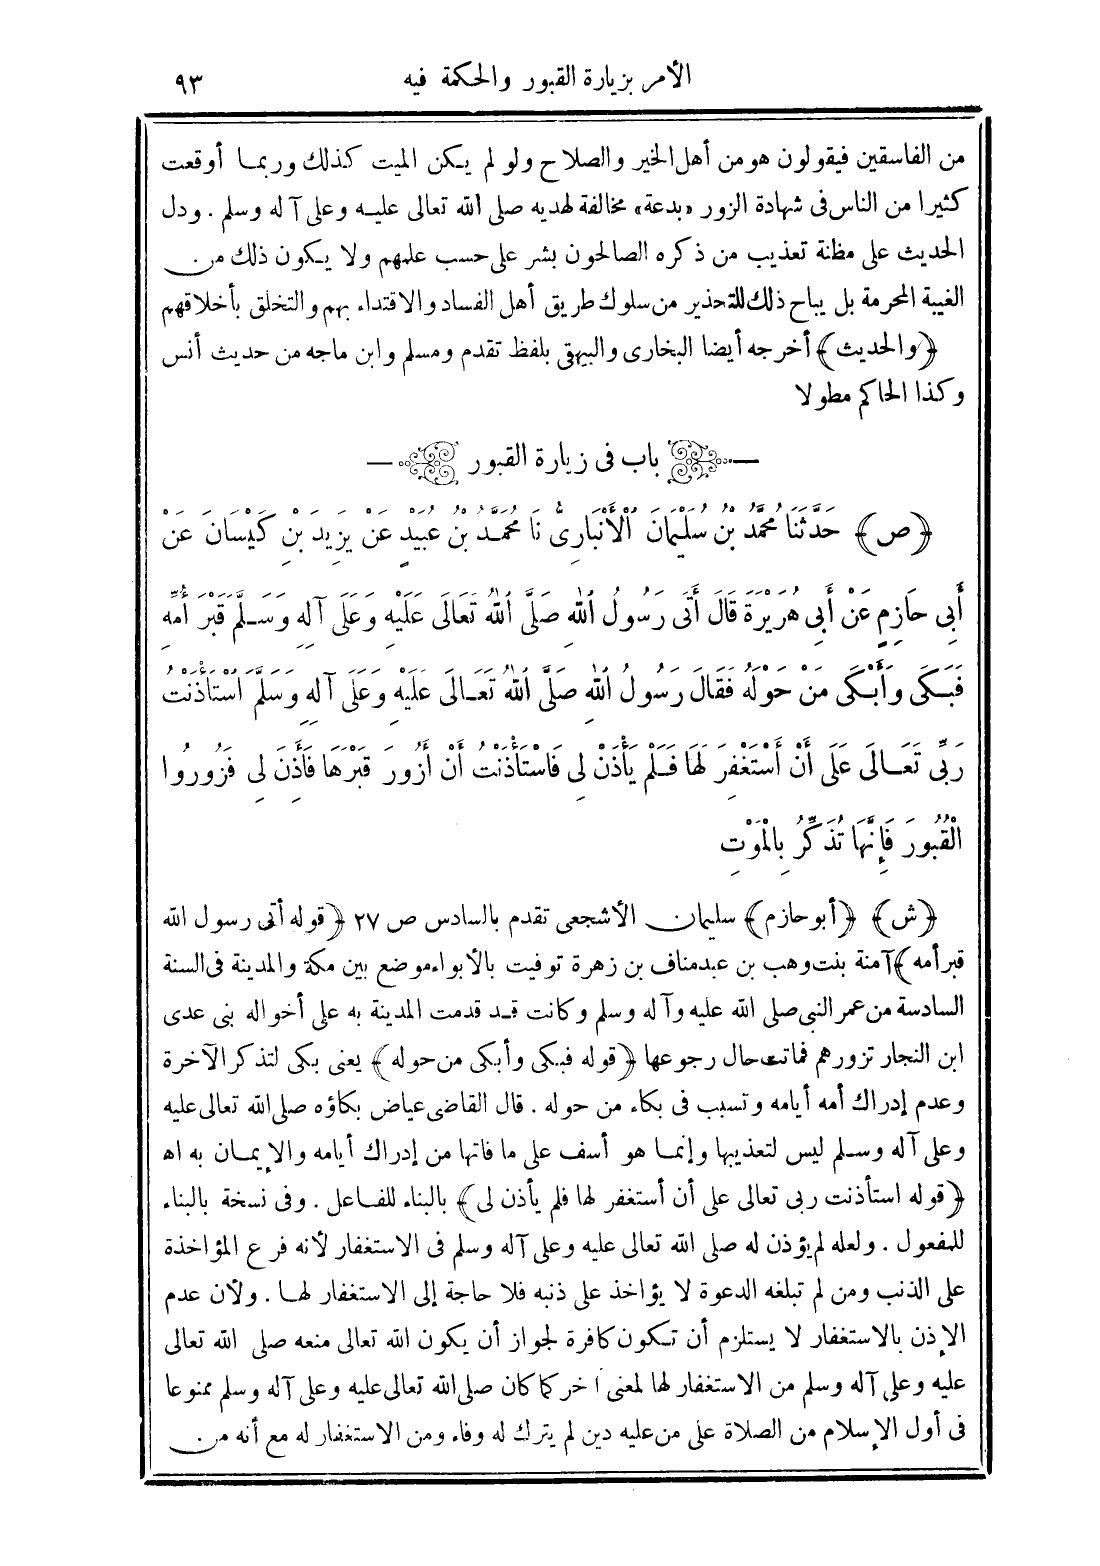 الأمر بزيارة القبور والحكمة فيه ٩٣
من الفاسقين فيقولون هو من أهل الخير والصلاح ولو لم يكن الميت كذلك وربما أوقعت
كثيرا من الناس فى شهادة الزور «بدعة» مخالفة لهديه صلى الله تعالى عليه وعلى آله وسلم . ودل
الحديث على مظنة تعذيب من ذكره الصالحون بشر على حسب علمهم ولا يكون ذلك من
الغيبة المحرمة بل يباح ذلك للتحذير من سلوك طريق أهل الفساد والاقتداء بهم والتخلق بأخلاقهم
﴿والحديث﴾ أخرجه أيضا البخارى والبيهقى بلفظ تقدم ومسلم وابن ماجه من حديث أنس
وكذا الحاكم مطولا
— باب فى زيارة القبور —
﴿ص﴾ حَدَّثَنَا مُحَمَّدُ بْنُ سُلَيْمَانَ الْأَنْبَارِىُّ نَا مُحَمَّدُ بْنُ عُبَيْدٍ عَنْ يَزِيدَ بْنِ كَيْسَانَ عَنْ
أَبِى حَازِمٍ عَنْ أَبِى هُرَيْرَةَ قَالَ أَتَى رَسُولُ اللهِ صَلَّى اللهُ تَعَالَى عَلَيْهِ وَعَلَى آلِهِ وَسَلَّمَ قَبْرَ أُمِّهِ
فَبَكَى وَأَبْكَى مَنْ حَوْلَهُ فَقَالَ رَسُولُ اللهِ صَلَّى اللهُ تَعَالَى عَلَيْهِ وَعَلَى آلِهِ وَسَلَّمَ اسْتَأْذَنْتُ
رَبِّى تَعَالَى عَلَى أَنْ أَسْتَغْفِرَ لَهَا فَلَمْ يَأْذَنْ لِى فَاسْتَأْذَنْتُ أَنْ أَزُورَ قَبْرَهَا فَأَذِنَ لِى فَزُورُوا
الْقُبُورَ فَإِنَّهَا تُذَكِّرُ بِالْمَوْتِ
﴿ش﴾ ﴿أبو حازم﴾ سليمان الأشجعى تقدم بالسادس ص ٢٧ ﴿قوله أتى رسول الله
قبر أمه﴾ آمنة بنت وهب بن عبد مناف بن زهرة توفيت بالأبواء موضع بين مكة والمدينة فى السنة
السادسة من عمر النبى صلى الله عليه وآله وسلم وكانت قد قدمت المدينة به على أخواله بنى عدى
ابن النجار تزورهم فماتت حال رجوعها ﴿قوله فبكى وأبكى من حوله﴾ يعنى بكى لتذكر الآخرة
وعدم إدراك أمه أيامه وتسبب فى بكاء من حوله . قال القاضى عياض بكاؤه صلى الله تعالى عليه
وعلى آله وسلم ليس لتعذيبها وإنما هو أسف على ما فاتها من إدراك أيامه والإيمان به اه
﴿قوله استأذنت ربى تعالى على أن أستغفر لها فلم يأذن لى﴾ بالبناء للفاعل . وفى نسخة بالبناء
للمفعول . ولعله لم يؤذن له صلى الله تعالى عليه وعلى آله وسلم فى الاستغفار لأنه فرع المؤاخذة
على الذنب ومن لم تبلغه الدعوة لا يؤاخذ على ذنبه فلا حاجة إلى الاستغفار لها . ولأن عدم
الإذن بالاستغفار لا يستلزم أن تكون كافرة لجواز أن يكون الله تعالى منعه صلى الله تعالى
عليه وعلى آله وسلم من الاستغفار لها لمعنى آخر كما كان صلى الله تعالى عليه وعلى آله وسلم ممنوعا
فى أول الإسلام من الصلاة على من عليه دين لم يترك له وفاء ومن الاستغفار له مع أنه من